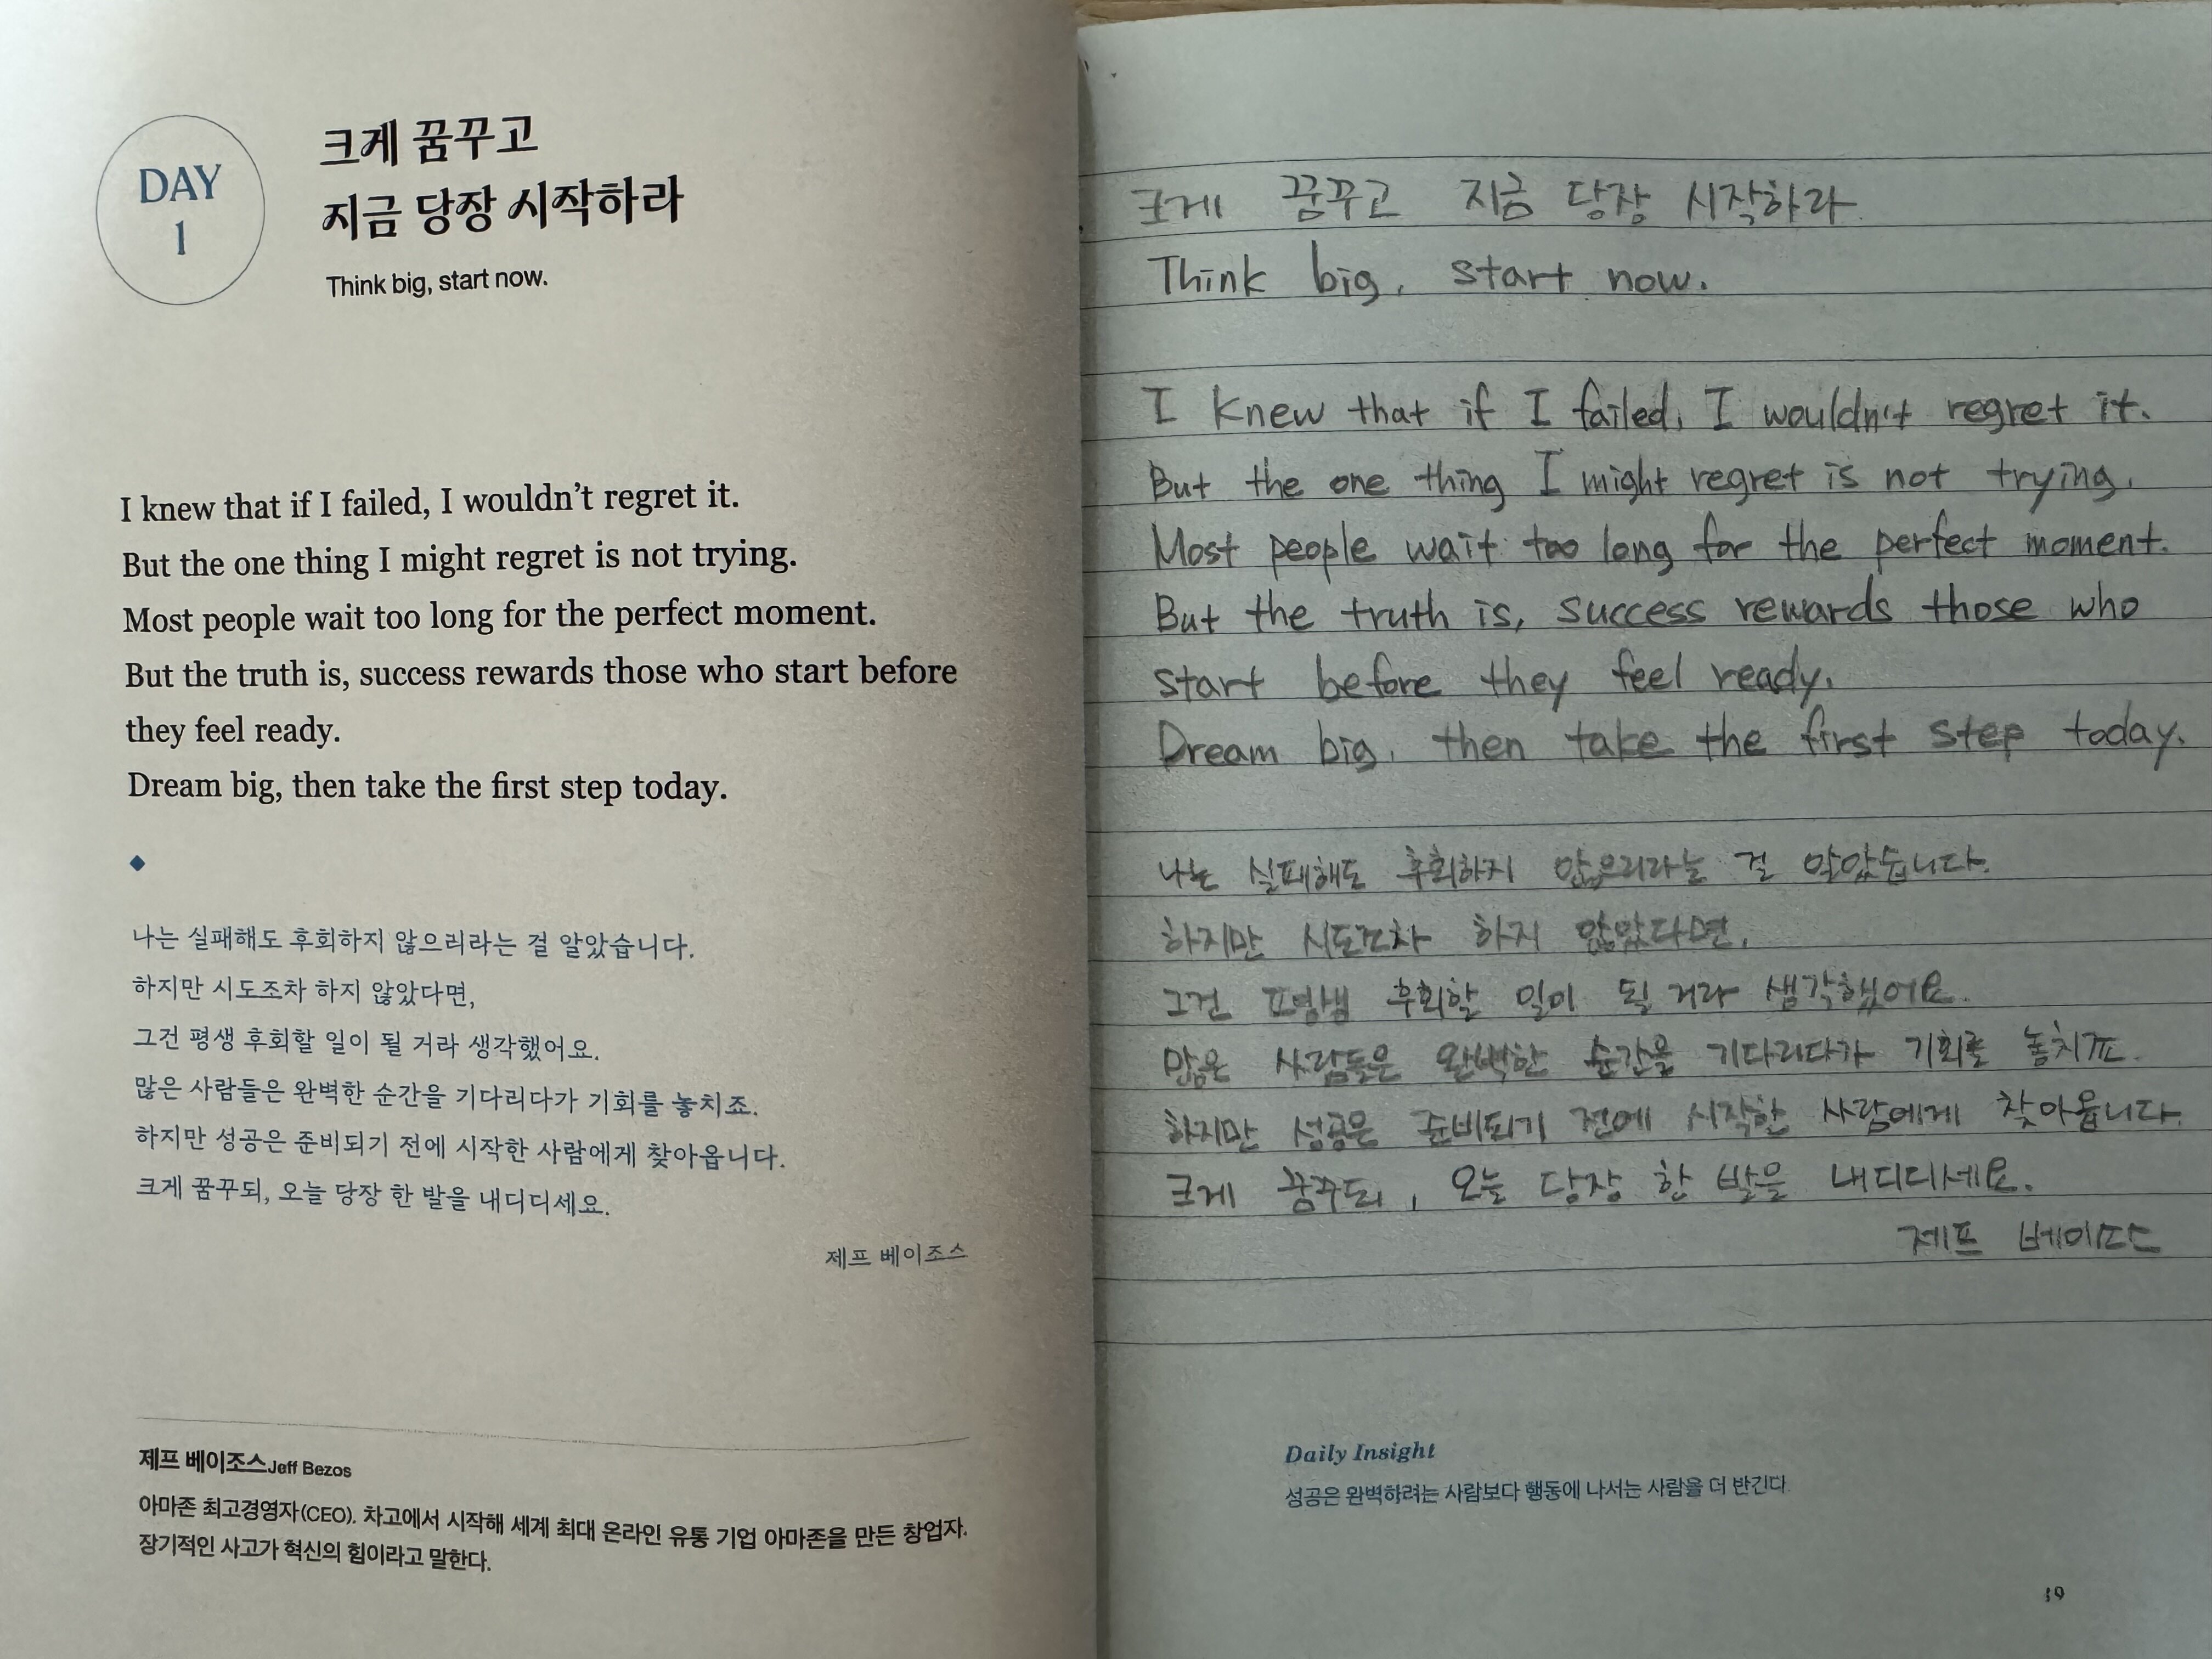 DAY
1
크게 꿈꾸고
지금 당장 시작하라
Think big, start now.
I knew that if I failed, I wouldn't regret it.
But the one thing I might regret is not trying.
Most people wait too long for the perfect moment.
But the truth is, success rewards those who start before
they feel ready.
Dream big, then take the first step today.
나는 실패해도 후회하지 않으리라는 걸 알았습니다.
하지만 시도조차 하지 않았다면,
그건 평생 후회할 일이 될 거라 생각했어요.
많은 사람들은 완벽한 순간을 기다리다가 기회를 놓치죠.
하지만 성공은 준비되기 전에 시작한 사람에게 찾아옵니다.
크게 꿈꾸되, 오늘 당장 한 발을 내디디세요.
제프 베이조스
제프 베이조스 Jeff Bezos
아마존 최고경영자(CEO). 차고에서 시작해 세계 최대 온라인 유통 기업 아마존을 만든 창업자.
장기적인 사고가 혁신의 힘이라고 말한다.
크게 꿈꾸고 지금 당장 시작하라.
Think big, start now.
I knew that if I failed, I wouldn't regret it.
But the one thing I might regret is not trying.
Most people wait too long for the perfect moment.
But the truth is, success rewards those who
start before they feel ready.
Dream big, then take the first step today.
나는 실패해도 후회하지 않으리라는 걸 알았습니다.
하지만 시도조차 하지 않았다면,
그건 평생 후회할 일이 될 거라 생각했어요.
많은 사람들은 완벽한 순간을 기다리다가 기회를 놓치죠.
하지만 성공은 준비되기 전에 시작한 사람에게 찾아옵니다.
크게 꿈꾸되, 오늘 당장 한 발을 내디디세요.
제프 베이조스
Daily Insight
성공은 완벽하려는 사람보다 행동에 나서는 사람을 더 반긴다.
19